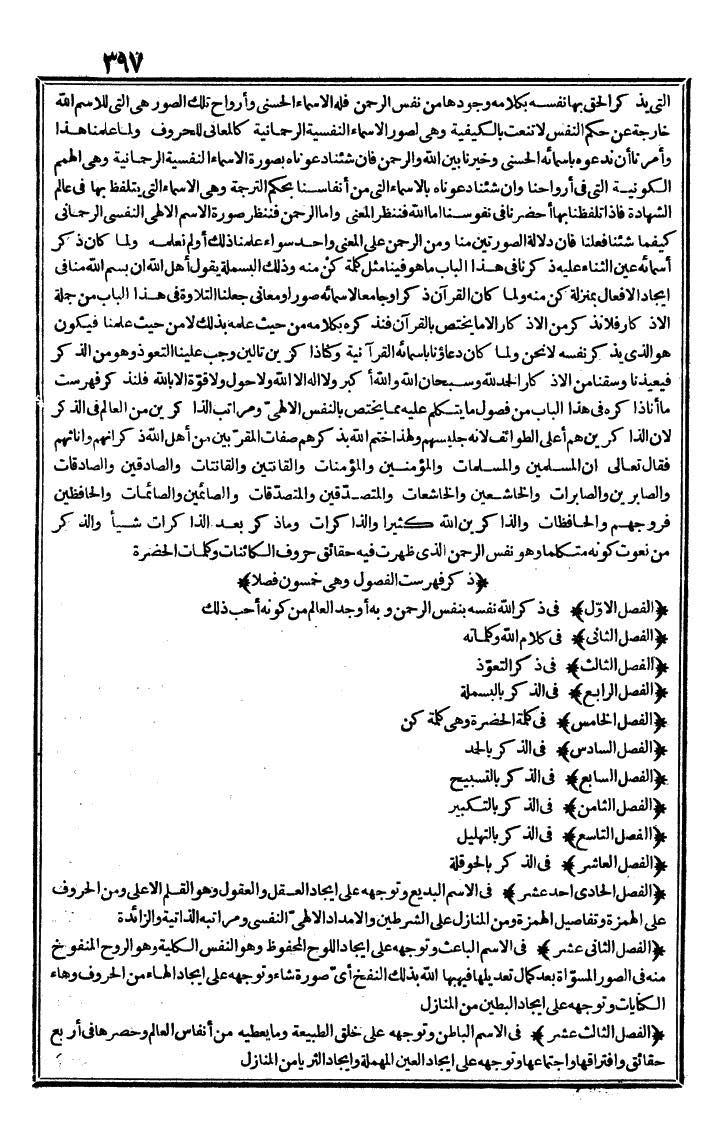 ٣٩٧
التى يذكر الحق بها نفسه بكلامه وجودها من نفس الرحمن فله الاسماء الحسنى وأرواح تلك الصور هى التى للاسم الله
خارجة عن حكم النفس لا تنعت بالكيفية وهى لصور الاسماء النفسية الرحمانية كالمعانى للحروف ولما علمنا هذا
وأمرنا أن ندعوه باسمائه الحسنى وخيرنا بين الله والرحمن فان شئنا دعوناه بصورة الاسماء النفسية الرحمانية وهى الهمم
الكونية التى فى أرواحنا وان شئنا دعوناه بالاسماء التى من أنفاسنا بحكم الترجمة وهى الاسماء التى يتلفظ بها فى عالم
الشهادة فاذا تلفظنا بها أحضرنا فى نفوسنا اما الله فننظر المعنى واما الرحمن فننظر صورة الاسم الالهى النفسى الرحمانى
كيفما شئنا فعلنا فان دلالة الصورتين منا ومن الرحمن على المعنى واحد سواء علمنا ذلك أو لم نعلمه ولما كان ذكر
أسمائه عين الثناء عليه ذكرنا فى هذا الباب ما هو فينا مثل كلمة كن منه وذلك البسملة يقول أهل الله ان بسم الله منا فى
ايجاد الافعال بمنزلة كن منه ولما كان القرآن ذكرا وجامعا لاسمائه صورا ومعانى جعلنا التلاوة فى هذا الباب من جملة
الاذكار فلا نذكر من الاذكار الا ما يختص بالقرآن فنذكره بكلامه من حيث علمه بذلك لا من حيث علمنا فيكون
هو الذى يذكر نفسه لا نحن ولما كان دعاؤنا باسمائه القرآنية وكنا ذاكرين تالين وجب علينا التعوذ وهو من الذكر
فيعيذنا وسقنا من الاذكار الحمد لله وسبحان الله والله أكبر ولا اله الا الله ولا حول ولا قوة الا بالله فلنذكر فهرست
ما أنا ذاكره فى هذا الباب من فصول ما يتكلم عليه مما يختص بالنفس الالهى ومراتب الذاكرين من العالم فى الذكر
لان الذاكرين هم أعلى الطوائف لانه جليسهم ولهذا ختم الله بذكرهم صفات المقربين من أهل الله ذكرانهم واناثهم
فقال تعالى ان المسلمين والمسلمات والمؤمنين والمؤمنات والقانتين والقانتات والصادقين والصادقات
والصابرين والصابرات والخاشعين والخاشعات والمتصدقين والمتصدقات والصائمين والصائمات والحافظين
فروجهم والحافظات والذاكرين الله كثيرا والذاكرات وما ذكر بعد الذاكرات شيأ والذكر
من نعوت كونه متكلما وهو نفس الرحمن الذى ظهرت فيه حقائق حروف الكائنات وكلمات الحضرة
﴿ذكر فهرست الفصول وهى خمسون فصلا﴾
﴿الفصل الاوّل﴾ فى ذكر الله نفسه بنفس الرحمن وبه أوجد العالم من كونه أحب ذلك
﴿الفصل الثانى﴾ فى كلام الله وكلماته
﴿الفصل الثالث﴾ فى ذكر التعوّذ
﴿الفصل الرابع﴾ فى الذكر بالبسملة
﴿الفصل الخامس﴾ فى كلمة الحضرة وهى كلمة كن
﴿الفصل السادس﴾ فى الذكر بالحمد
﴿الفصل السابع﴾ فى الذكر بالتسبيح
﴿الفصل الثامن﴾ فى الذكر بالتكبير
﴿الفصل التاسع﴾ فى الذكر بالتهليل
﴿الفصل العاشر﴾ فى الذكر بالحوقلة
﴿الفصل الحادى احد عشر﴾ فى الاسم البديع وتوجهه على ايجاد العقل والعقول وهو القلم الاعلى ومن الحروف
على الهمزة وتفاصيل الهمزة ومن المنازل على الشرطين والامداد الالهىّ النفسى ومراتبه الذاتية والزائدة
﴿الفصل الثانى عشر﴾ فى الاسم الباعث وتوجهه على ايجاد اللوح المحفوظ وهو النفس الكلية وهو الروح المنفوخ
منه فى الصور المسوّاة بعد كمال تعديلها فيهبها الله بذلك النفخ أىّ صورة شاء وتوجهه على ايجاد الهاء من الحروف وهاء
الكنايات وتوجهه على ايجاد البطين من المنازل
﴿الفصل الثالث عشر﴾ فى الاسم الباطن وتوجهه على خلق الطبيعة وما يعطيه من أنفاس العالم وحصرها فى أربع
حقائق وافتراقها واجتماعها وتوجهه على ايجاد العين المهملة وايجاد الثريا من المنازل